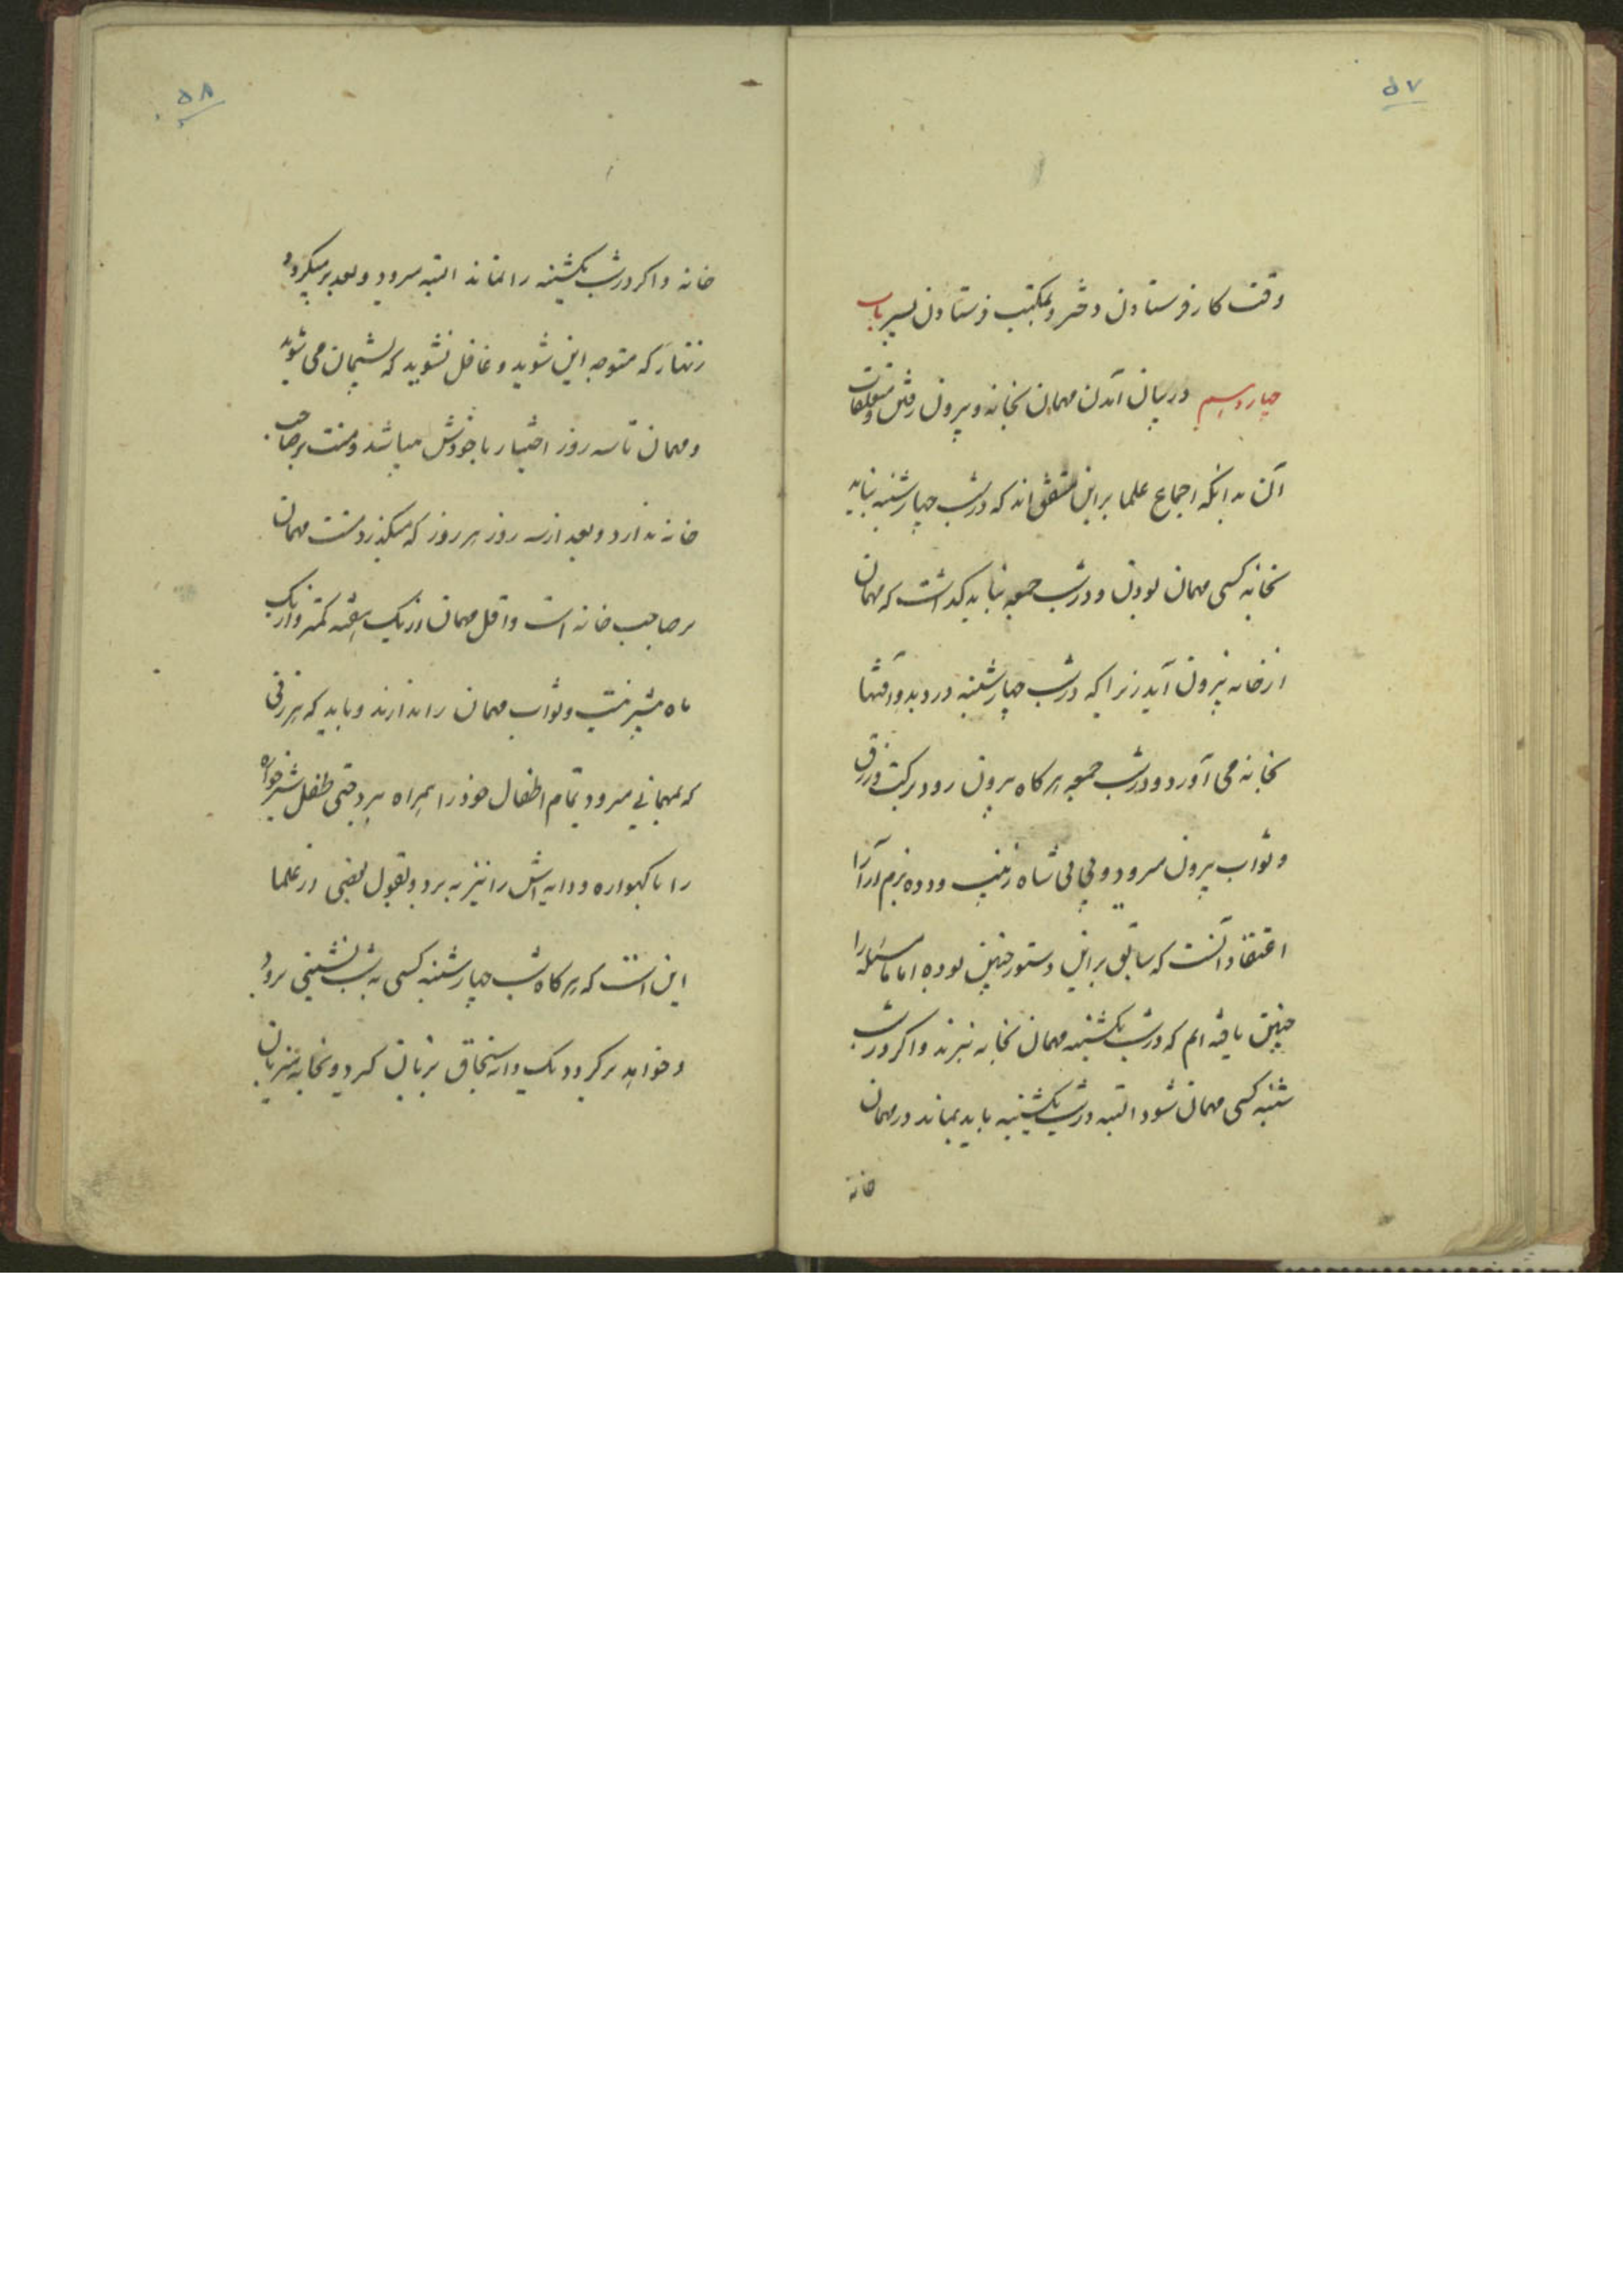 ۵۷
وقت کار فرستادن دختر و بمکتب فرستادن پسر باب
چهاردهم در بیان آمدن مهمان بخانه و بیرون رفتن و متعلقات
آن بدانکه اجماع علما بر این متفق اند که در شب چهارشنبه نباید
بخانه کسی مهمان بودن و در شب جمعه نباید گذاشت که مهمان
از خانه بیرون آید زیرا که در شب چهارشنبه درد و بلا و آفتها
بخانه می آورد و در شب جمعه هرگاه بیرون رود برکت و رزق
و ثواب بیرون میرود و بی بی شاه زینب و دده بزم آرا را
اعتقاد آنست که سابق بر این دستور چنین بوده اما ما مسئله را
چنین یافته ایم که در شب یکشنبه مهمان بخانه نبرند و اگر در شب
شنبه کسی مهمان شود البته در شب یکشنبه باید بماند در مهمان
خانه
۵۸
خانه و اگر در شب یکشنبه را نماند البته میرود و بعد بر میگردد
زنهار که متوجه این شوید و غافل نشوید که پشیمان می شوید
و مهمان تا سه روز اختیار با خودش میباشد و منت بر صاحب
خانه ندارد و بعد از سه روز هر روز که میگذرد منت مهمان
بر صاحب خانه است و اقل مهمان از یک هفته کمتر و از یک
ماه بیشتر نیست و ثواب مهمان را ندارند و باید که هر زنی
که بمهمانی میرود تمام اطفال خود را همراه ببرد حتی طفل شیرخواره
را با گهواره و دایه اش را نیز به برد و بقول بعضی از علما
این است که هرگاه شب چهارشنبه کسی به شب نشینی برود
و خواهد برگردد یک دانه سنجاق بزبان گیرد و بخانه میزبان